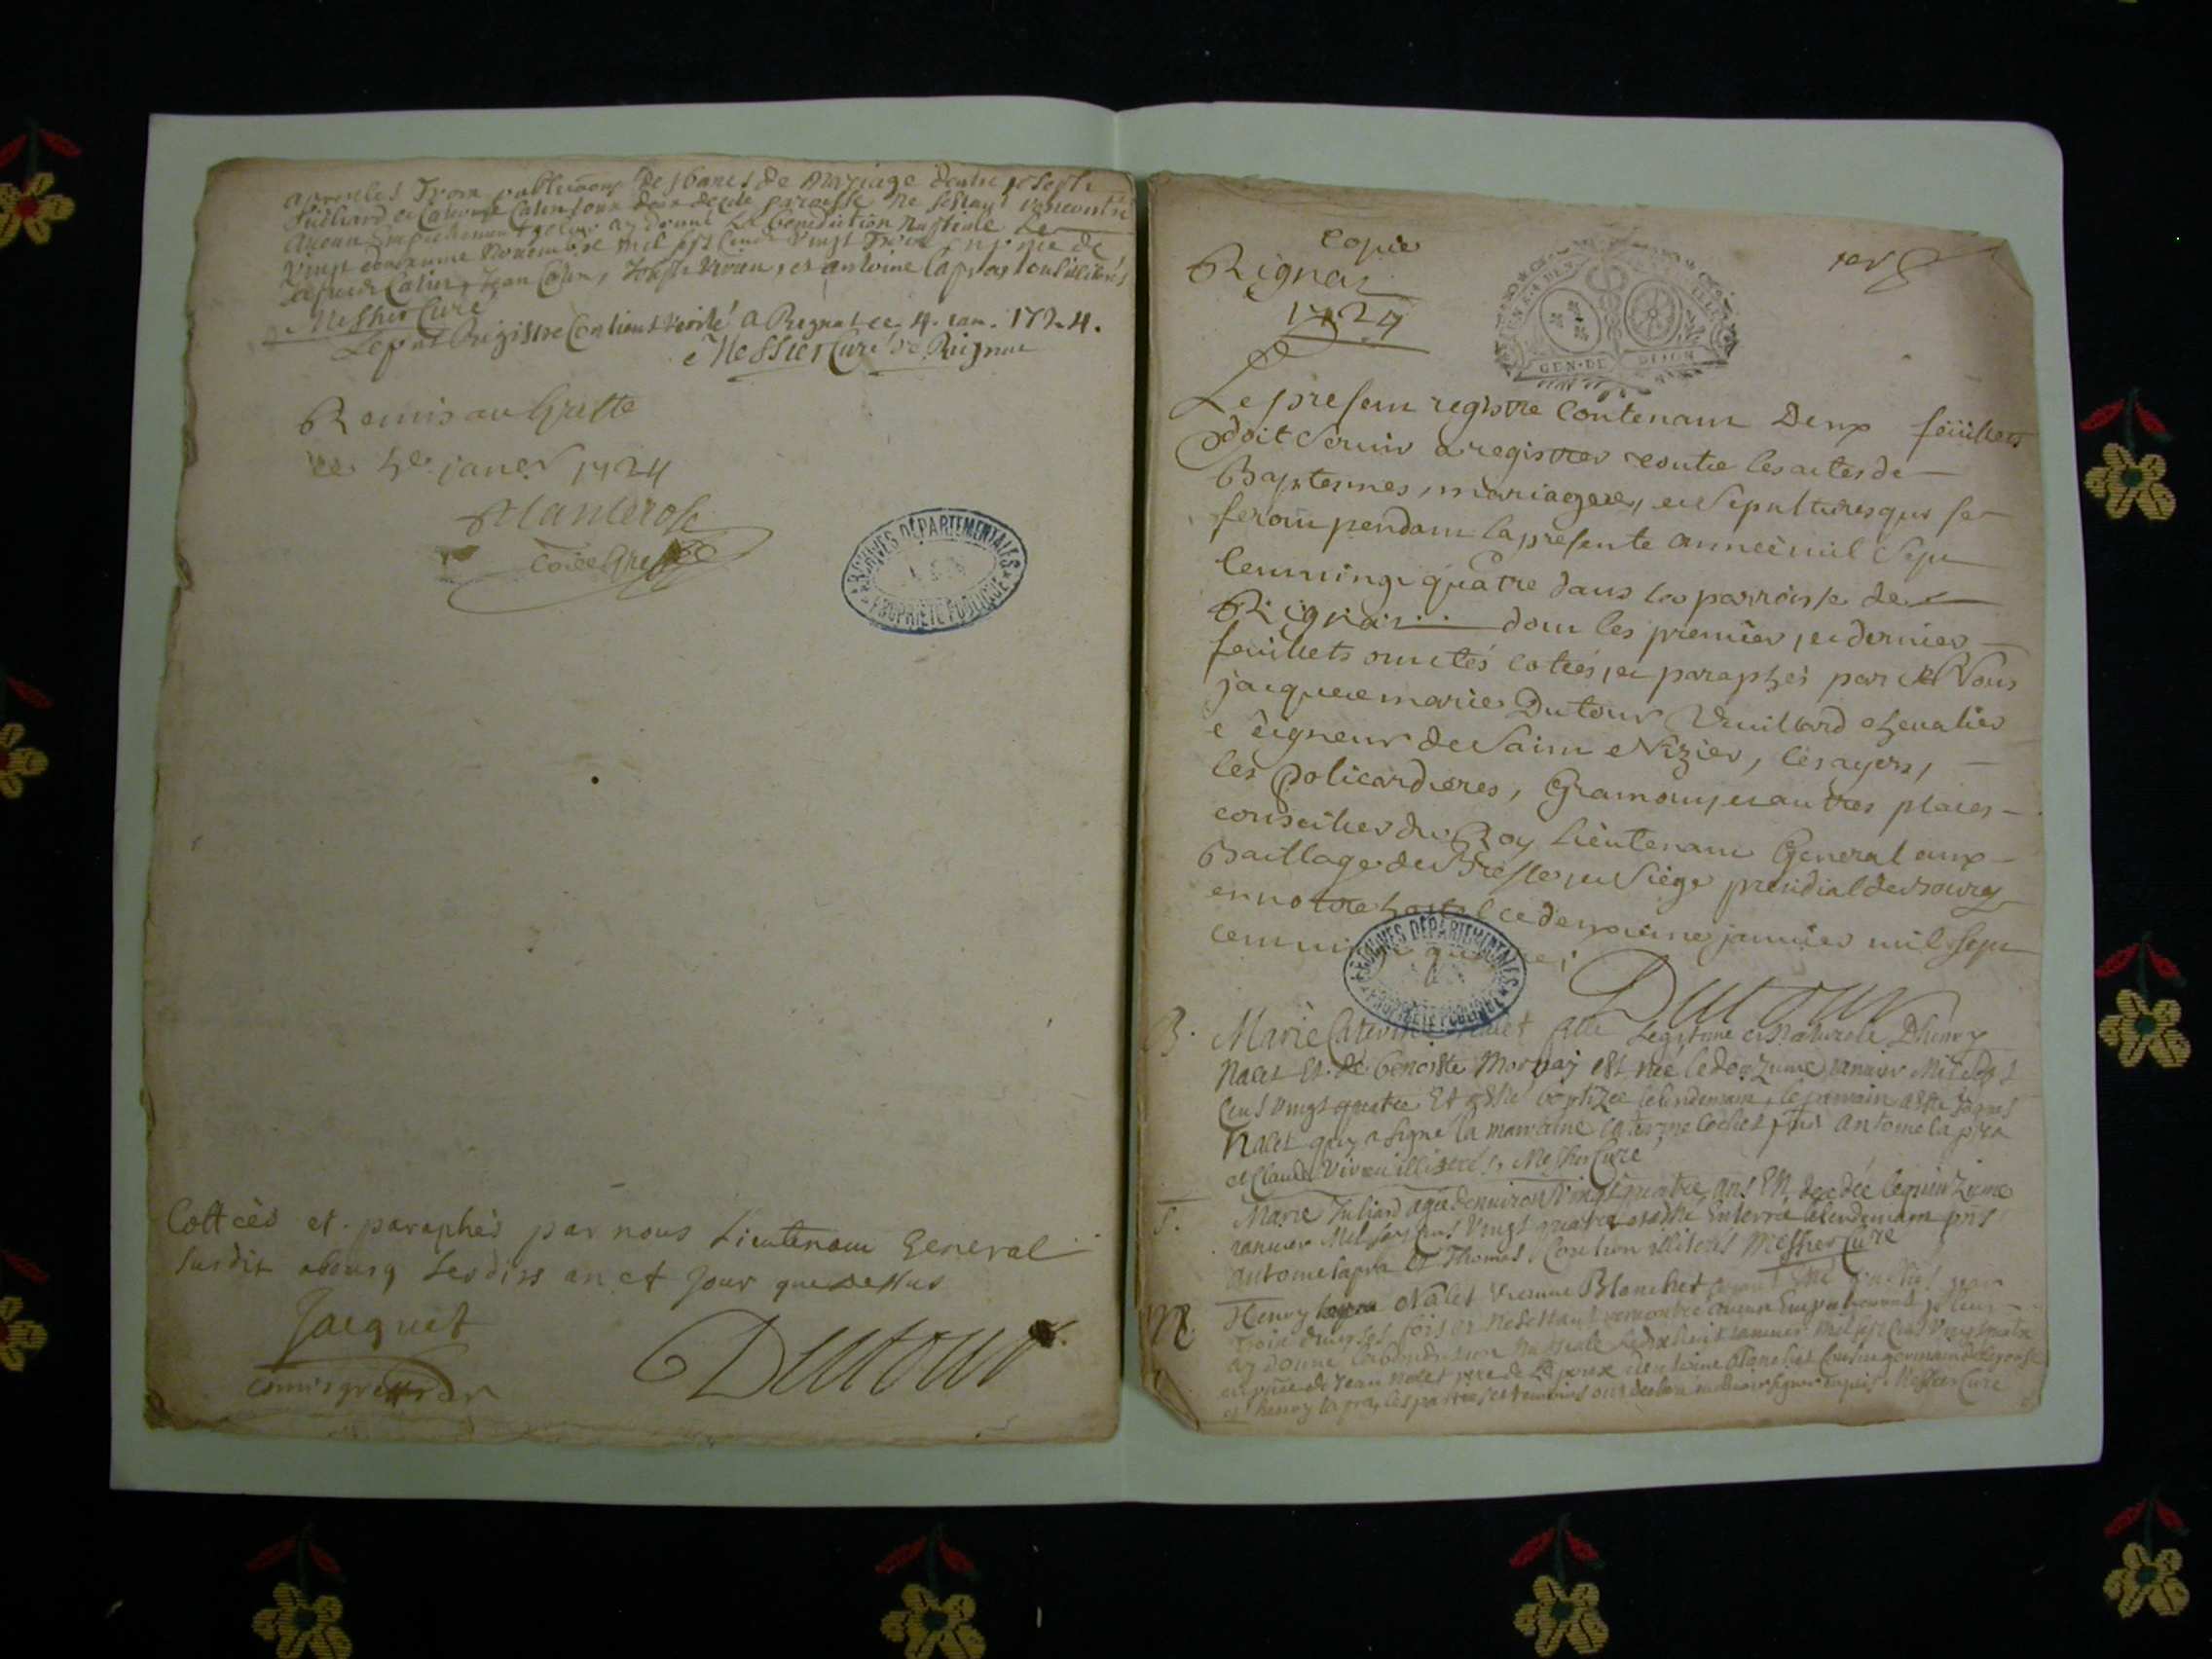 apres les Trois publications Des bancs de Mariage dentre joseph
Juillard et Caterine Catin tous deux de cete paroisse ne sestant rencontré
Aucun Empechement je leur ay donné La benediction nuptiale Le
vingt Novembre mil sept Cent vingt Trois en pnce de
Catin, Jean Catin, Joseph Vivien, et antoine lapra, tous illiterés
Messier Curé
Le pnt Registre Contient verité A Regnat ce 4. ian. 1724.
Messier Curé de Rignat
Remis au Greffe
le 5e janer 1724
ARCHIVES DÉPARTEMENTALES
PROPRIÉTÉ PUBLIQUE
Cottées et paraphés par nous Lieutenant General
susdit abourg lesdits an et Jour que dessus
Jacquet
commis greffier
Dutour
copie
Rignat
1724
GEN·DE DIJON
Le present registre contenant Deux feüillets
doit servir a registrer les actes de
Baptesmes, mariages, et Sepultures qui se
feront pendant la presente année mil Sept
cent vingt quatre dans la parroisse de
Rignat dont les premier, et dernier
feüillets ont étés cottés, et paraphés par Nous
jacques marie Dutour Vuillard chevalier
Seigneur de Saint Nizier, lesayers,
les Policardieres, Gramont, et autres places
conseiller du Roy Lieutenant General aux
Baillage de Bresse, et Siege presidial de Bourg
en notre hostel ce deuxieme janvier mil Sept
cent vingt quatre;
Dutour
ARCHIVES DÉPARTEMENTALES
PROPRIÉTÉ PUBLIQUE
B. Marie Caterine Nalet fille Legitime et Naturele D'henry
Nalet Et de benoiste Mornay est née le douzieme Janvier Mil Sept
Cens vingt quatre Et a esté baptizée le lendemain, le parrain a esté
Nalet qui a signé la marraine Caterine Cochet pnts antoine lapra
et Claude Vivien illiterés, Messier Curé
S. Marie Juliard agée denviron Vingt quatre ans Est decedée le quinzieme
Janvier Mil sept cens Vingt quatre et a esté Enterrée le lendemain pnts
antoine lapra Et Thomas illiterés Messier Curé
M Henry Nalet Blanchet
Trois diverses fois et ne sestant rencontré aucun Empechement je leur
ay donné la benediction Nuptiale le dixhuit Janvier mil sept Cens Vingt quatre
en pnce de Jean Nalet pere de Lepoux Blanchet Cousin germain de Lepouse
et henry lapra, les parties et temoins ont declaré ne Messier Curé